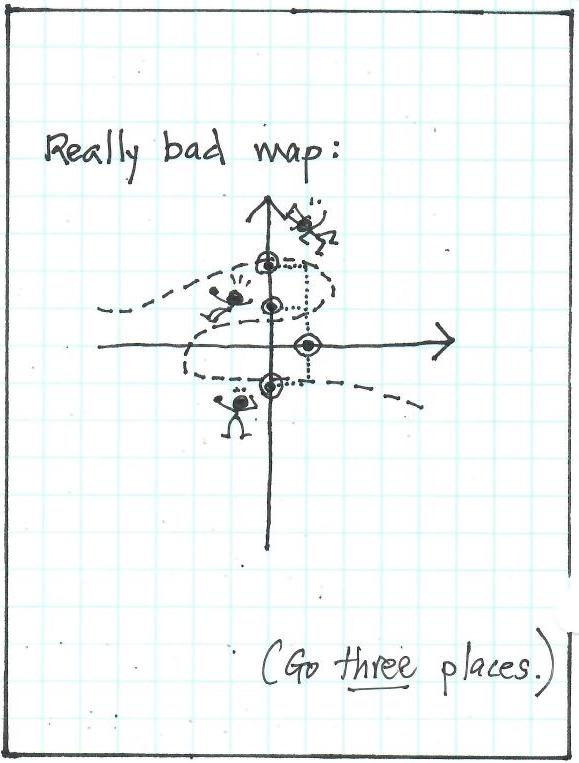 Really bad map:
(Go three places.)